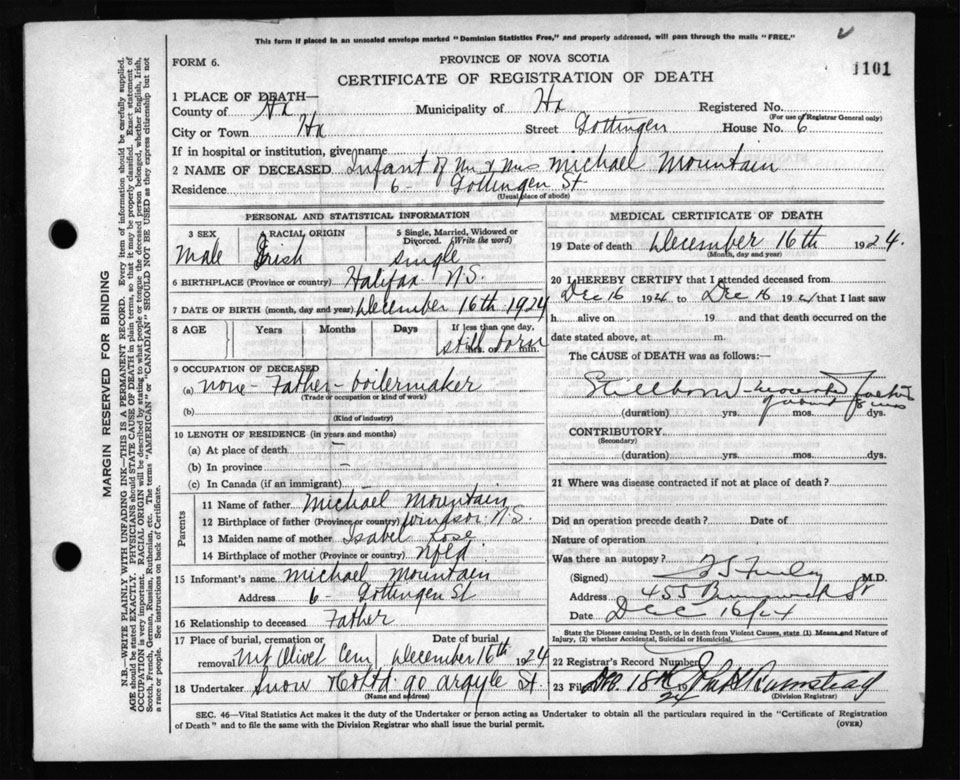 This form if placed in an unsealed envelope marked "Dominion Statistics Free," and properly addressed, will pass through the mails "FREE."
FORM 6.
PROVINCE OF NOVA SCOTIA
CERTIFICATE OF REGISTRATION OF DEATH
1101
1 PLACE OF DEATH—
County of Hx Municipality of Hx Registered No.
(For use of Registrar General only)
City or Town Hx Street Gottingen House No. 6
If in hospital or institution, give name
2 NAME OF DECEASED Infant of Mr & Mrs Michael Mountain
Residence 6 - Gottingen St
(Usual place of abode)
PERSONAL AND STATISTICAL INFORMATION
3 SEX RACIAL ORIGIN 5 Single, Married, Widowed or Divorced. (Write the word)
Male Irish single
6 BIRTHPLACE (Province or country) Halifax N.S.
7 DATE OF BIRTH (month, day and year) December 16th 1924
8 AGE Years Months Days If less than one day,
still born hrs. or min.
9 OCCUPATION OF DECEASED
(a) none - Father - boilermaker
(Trade or occupation or kind of work)
(b)
(Kind of industry)
10 LENGTH OF RESIDENCE (in years and months)
(a) At place of death —
(b) In province —
(c) In Canada (if an immigrant)
Parents
11 Name of father Michael Mountain
12 Birthplace of father (Province or country) Windsor N.S.
13 Maiden name of mother Isabel Rose
14 Birthplace of mother (Province or country) Nfld.
15 Informant's name Michael Mountain
Address 6 - Gottingen St
16 Relationship to deceased Father
17 Place of burial, cremation or removal Mt Olivet Cem Date of burial December 16th 1924
18 Undertaker Snow & Co Ltd. 90 Argyle St.
(Name and address)
MEDICAL CERTIFICATE OF DEATH
19 Date of death December 16th 1924.
(Month, day and year)
20 I HEREBY CERTIFY that I attended deceased from
Dec 16 1924 to Dec 16 1924 that I last saw
h alive on 19 and that death occurred on
date stated above, at m.
The CAUSE of DEATH was as follows:—
Stillborn
(duration) yrs. mos. dys.
CONTRIBUTORY
(Secondary)
(duration) yrs. mos. dys.
21 Where was disease contracted if not at place of death?
Did an operation precede death? Date of
Nature of operation
Was there an autopsy?
(Signed) M.D.
Address 455 Brunswick St
Date Dec 16/24
State the Disease causing Death, or in death from Violent Causes, state (1) Means and Nature of Injury, (2) whether Accidental, Suicidal or Homicidal.
22 Registrar's Record Number
23 Filed Dec. 18th 1924
(Division Registrar)
SEC. 46—Vital Statistics Act makes it the duty of the Undertaker or person acting as Undertaker to obtain all the particulars required in the "Certificate of Registration
of Death" and to file the same with the Division Registrar who shall issue the burial permit. (OVER)
MARGIN RESERVED FOR BINDING
N.B.—WRITE PLAINLY WITH UNFADING INK—THIS IS A PERMANENT RECORD. Every item of information should be carefully supplied.
AGE should be stated EXACTLY. PHYSICIANS should STATE CAUSE OF DEATH in plain terms, so that it may be properly classified. Exact statement of
OCCUPATION is very important. RACIAL ORIGIN will be described by stating to what people or tongue the deceased person belonged, whether English, Irish,
Scotch, French, German, Russian, Ruthenian, etc. The terms "AMERICAN" or "CANADIAN" SHOULD NOT BE USED as they express citizenship but not
a race or people. See instructions on back of Certificate.